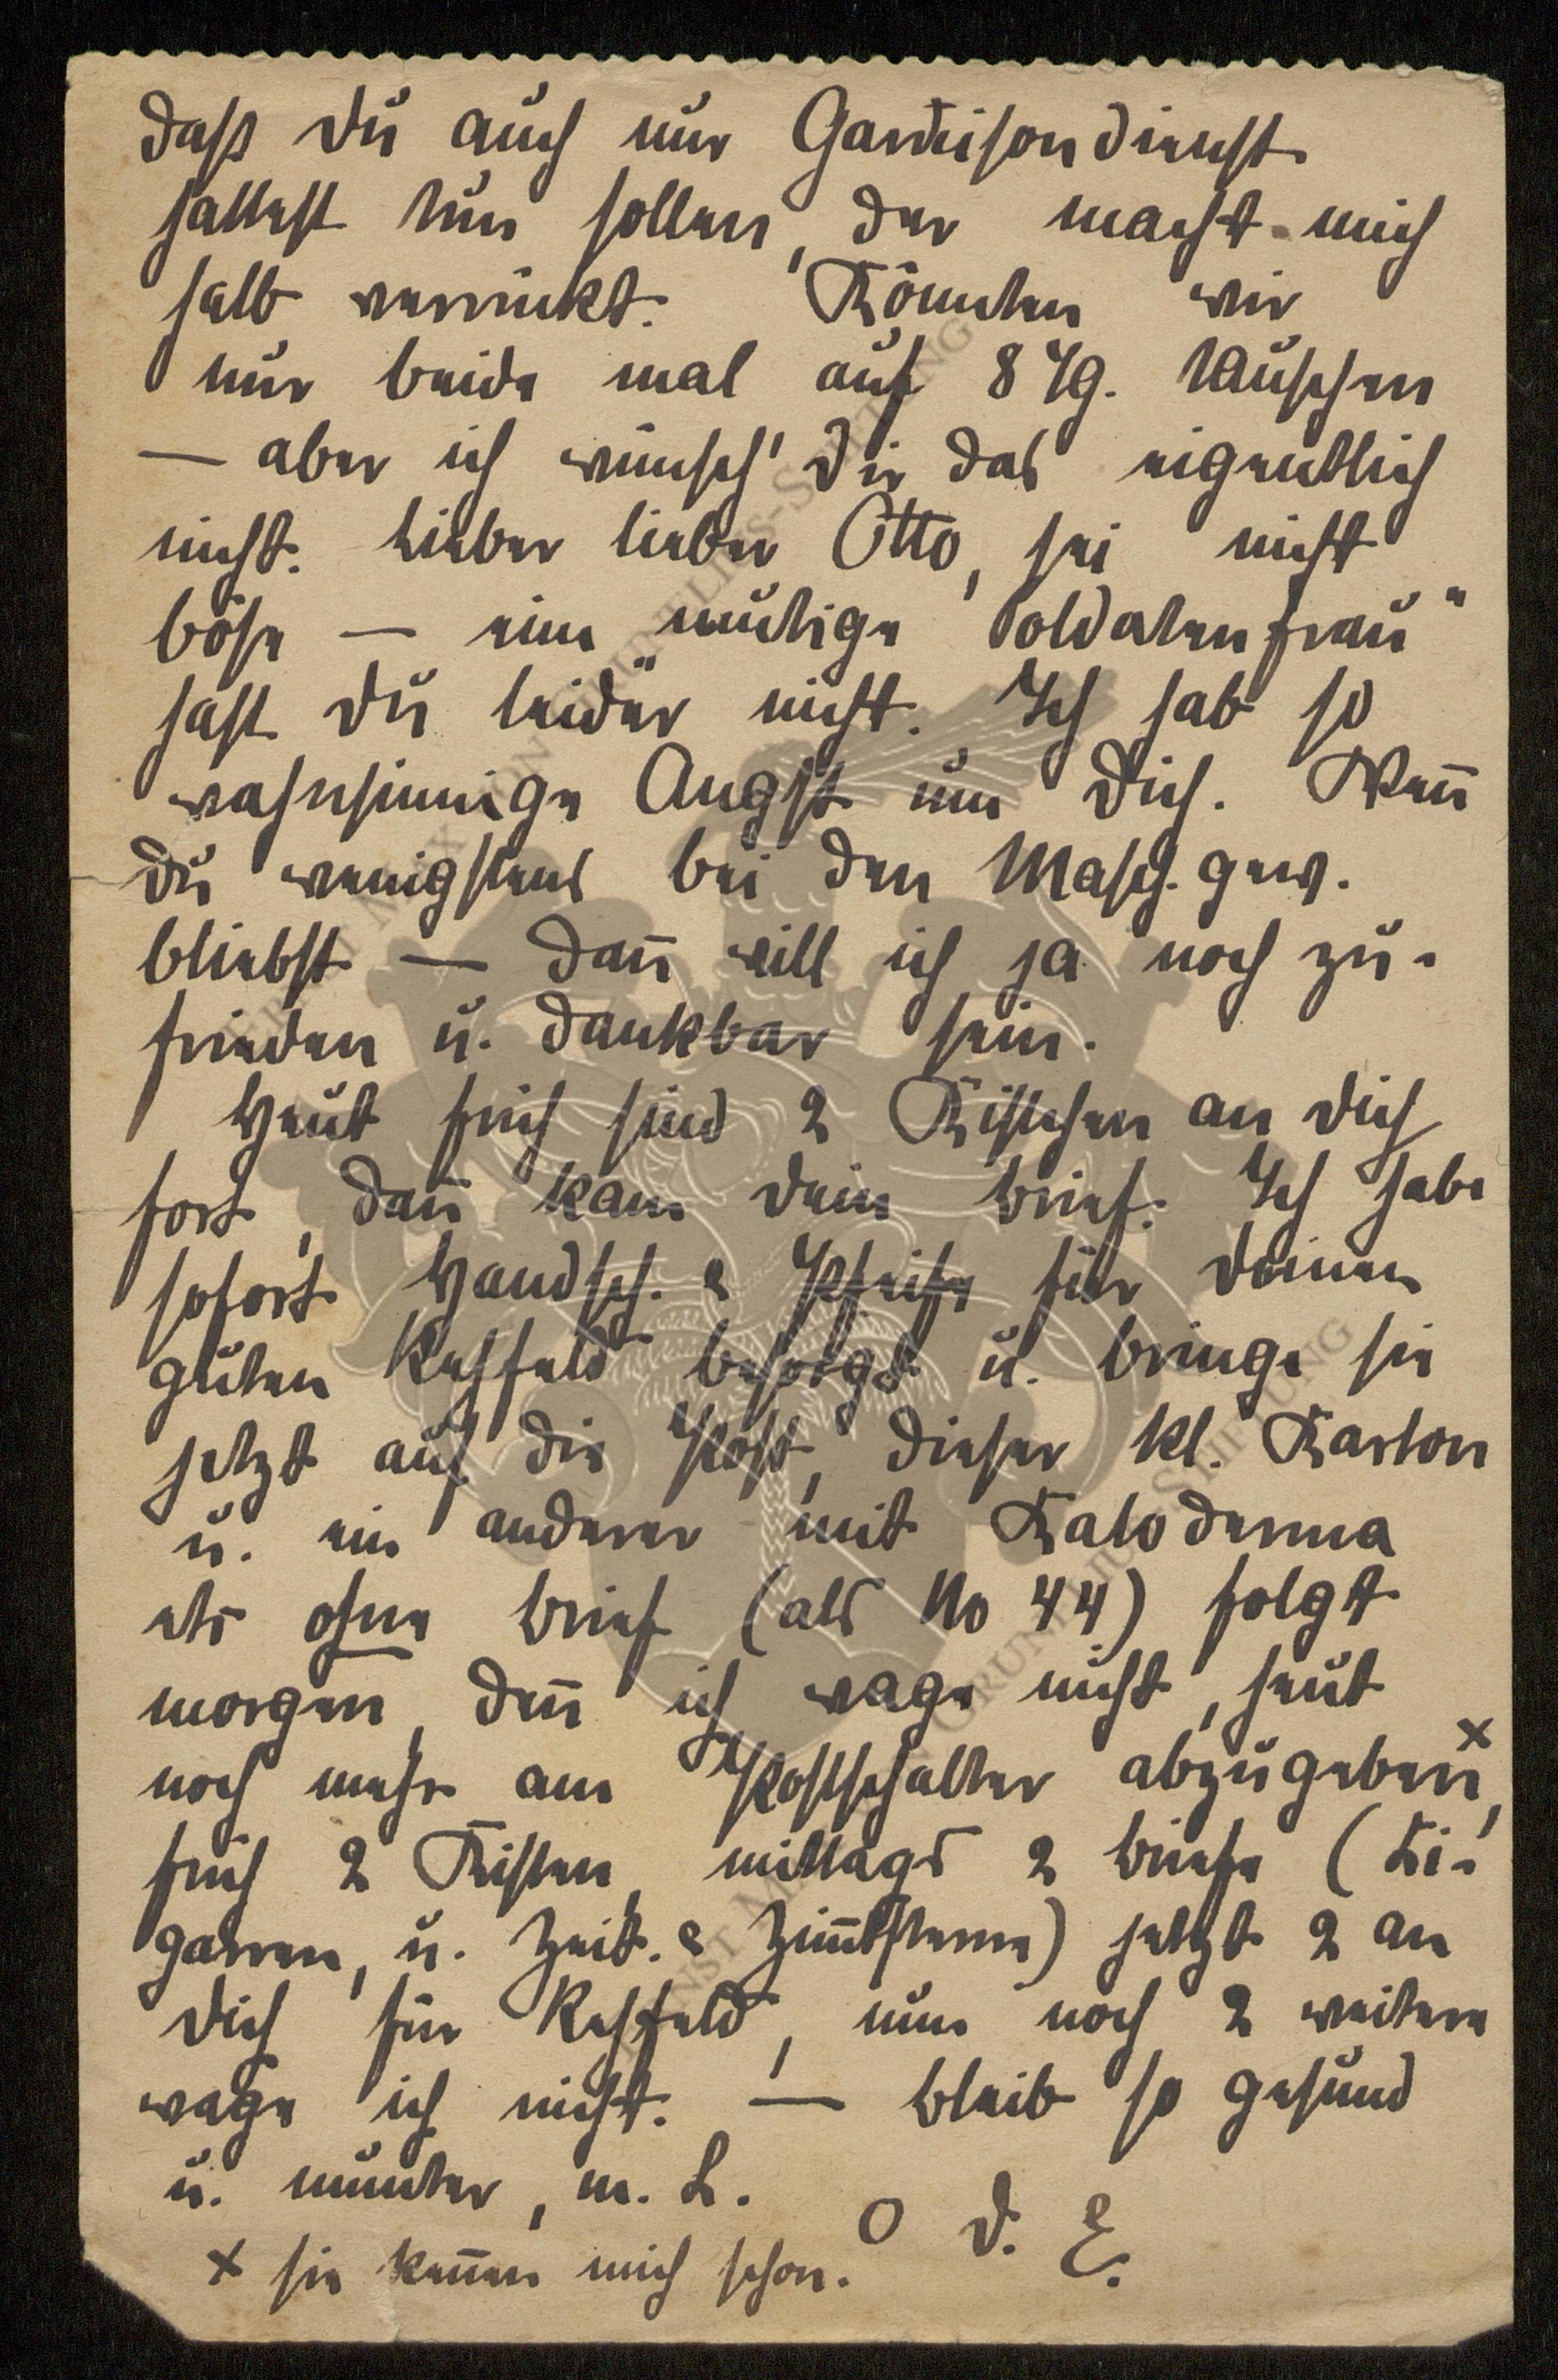 daß Du auch nur Garnisondienst
hättest tun sollen, der macht mich
halb verrückt. Könnten wir
nur beide mal auf 8 Tg. tauschen
— aber ich wünsch' Dir das eigentlich
nicht. Lieber lieber Otto, sei nicht
böse — eine mutige "Soldatenfrau"
hast Du leider nicht. Ich hab so
wahnsinnige Angst um Dich. Wen̄
Du wenigstens bei den Masch. gew.
bliebst — dan̄ will ich ja noch zu-
frieden u. dankbar sein.
Heut früh sind 2 Kistchen an Dich
fort, dan̄ kam Dein Brief. Ich habe
sofort Handsch. & Pfeife für Deinen
guten Rehfeld besorgt u. bringe sie
jetzt auf die Post, dieser kl. Karton
u. ein anderer mit Kaloderma
etc ohne Brief (als No 44) folgt
morgen, den̄ ich wage nicht, heut
noch mehr am Postschalter abzugeben x,
früh 2 Kisten, mittags 2 Briefe (Zi-
garren, u. Zeit. & Zim̄tsterne) jetzt 2 an
Dich für Rehfeld, nun noch 2 weitere
wage ich nicht. — Bleib so gesund
u. munter, m. L.
O D. E.
x sie ken̄en mich schon.